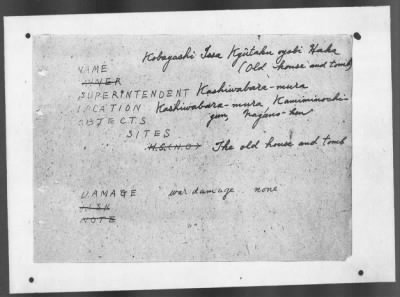 Kobayashi Issa Kyūtaku oyobi Haka
NAME (Old house and tomb)
OWNER
SUPERINTENDENT Kashiwabara-mura
LOCATION Kashiwabara-mura, Kamiminochi-
OBJECTS gun, Nagano-ken
SITES
The old house and tomb
DAMAGE war damage none
NOTE